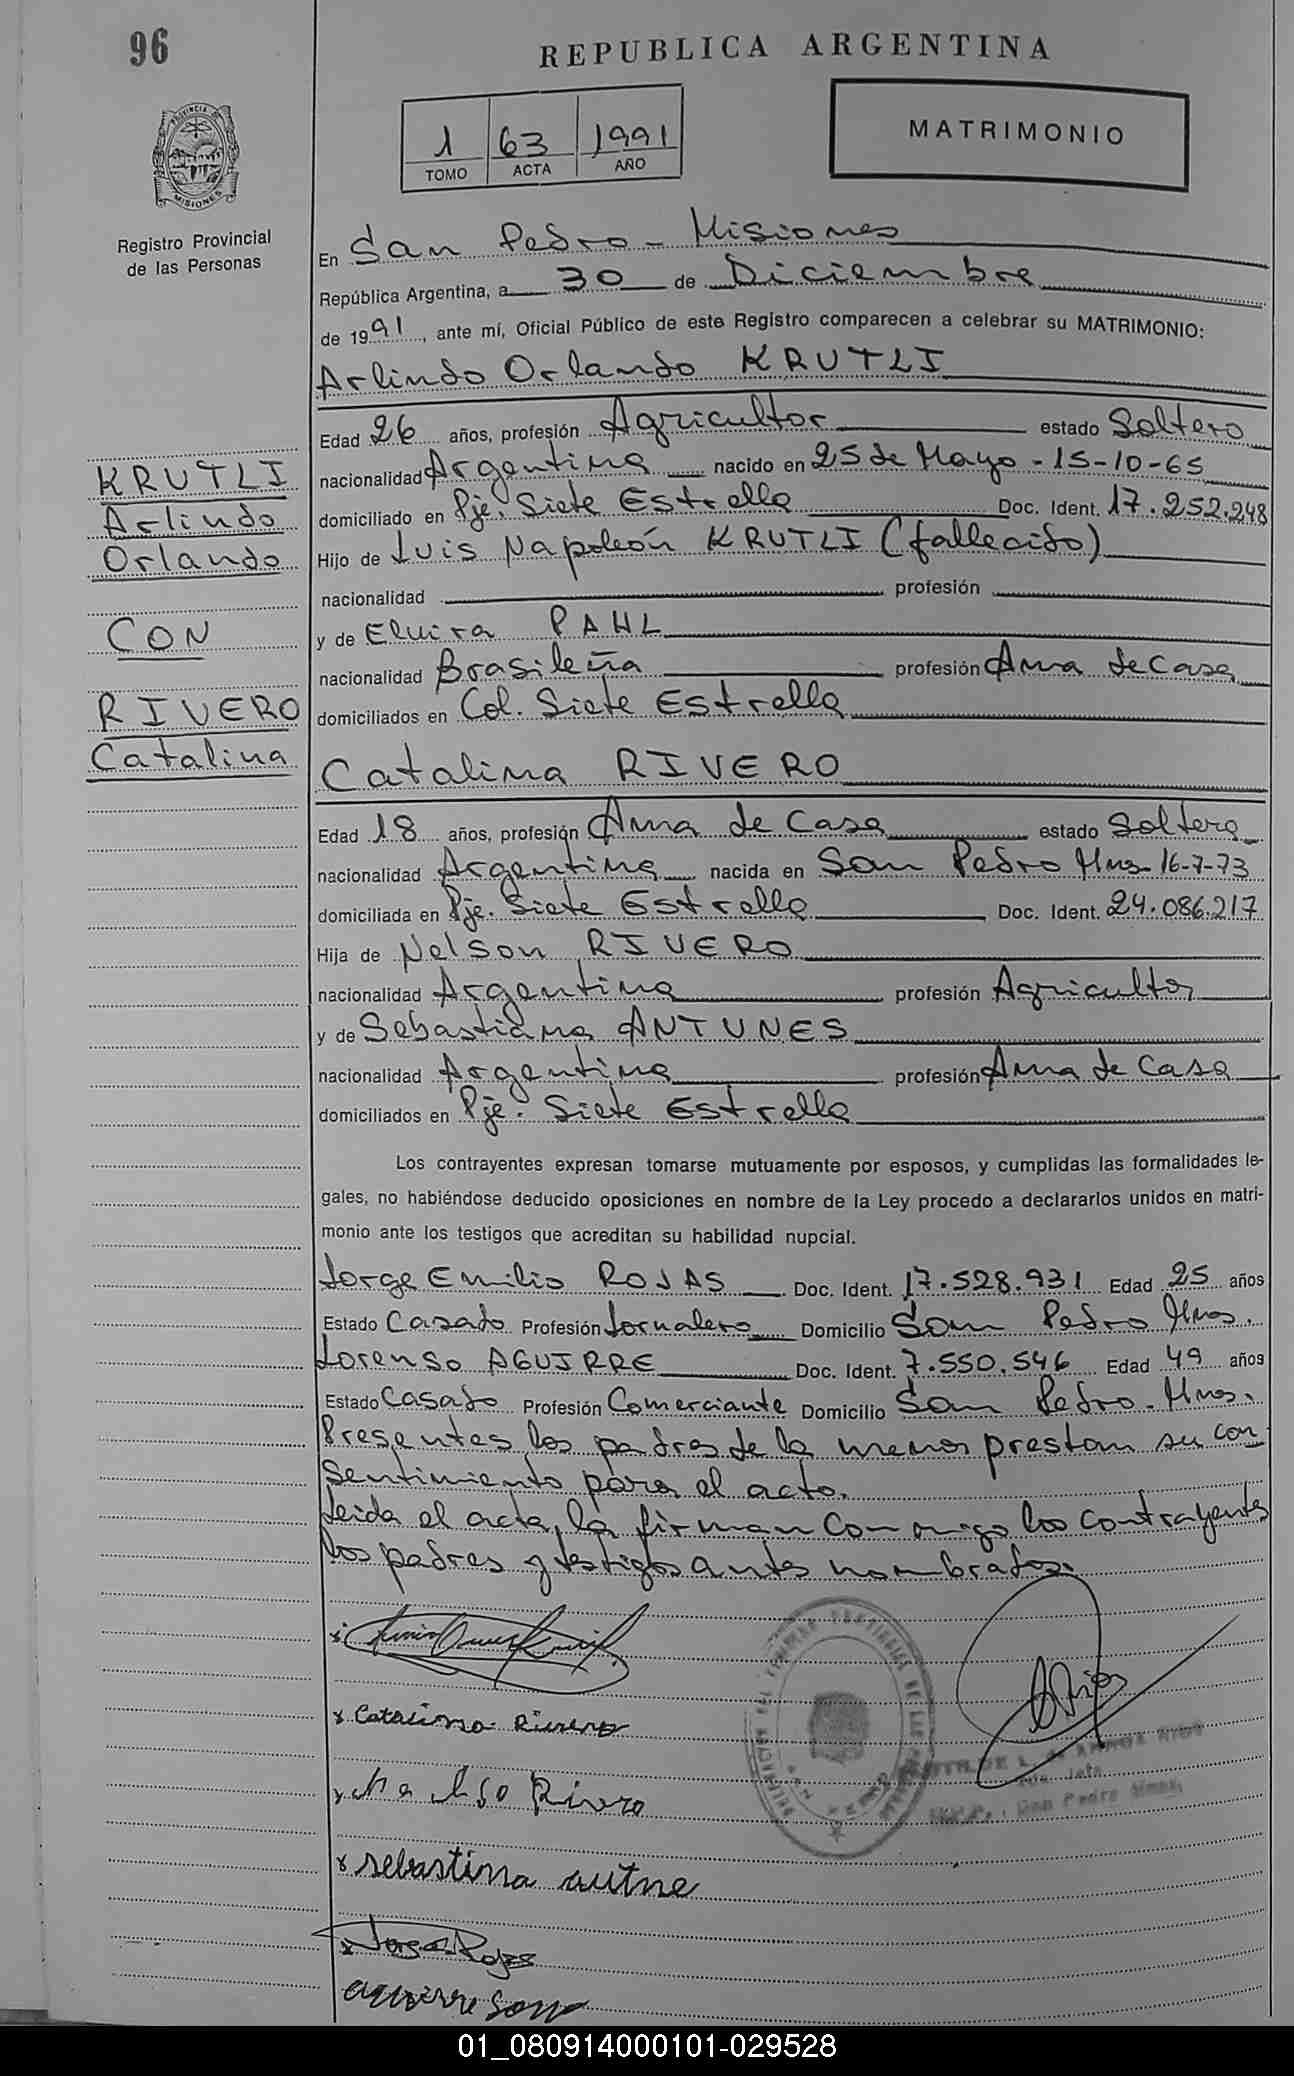 96
REPUBLICA ARGENTINA
1 63 1991
TOMO ACTA AÑO
MATRIMONIO
PROVINCIA DE
MISIONES
Registro Provincial
de las Personas
En San Pedro - Misiones
República Argentina, a 30 de Diciembre
de 1991, ante mí, Oficial Público de este Registro comparecen a celebrar su MATRIMONIO:
Arlindo Orlando KRUTLI
Edad 26 años, profesión Agricultor estado Soltero
nacionalidad Argentina nacido en 25 de Mayo - 15-10-65
domiciliado en Pje. Siete Estrella Doc. Ident. 17.252.248
Hijo de Luis Napoleón KRUTLI (fallecido)
nacionalidad profesión
y de Elvira PAHL
nacionalidad Brasileña profesión Ama de Casa
domiciliados en Col. Siete Estrella
KRUTLI
Arlindo
Orlando
CON
RIVERO
Catalina
Catalina RIVERO
Edad 18 años, profesión Ama de Casa estado Soltera
nacionalidad Argentina nacida en San Pedro Mnes - 16-7-73
domiciliada en Pje. Siete Estrella Doc. Ident. 24.086.217
Hija de Nelson RIVERO
nacionalidad Argentina profesión Agricultor
y de Sebastiana ANTUNES
nacionalidad Argentina profesión Ama de Casa
domiciliados en Pje. Siete Estrella
Los contrayentes expresan tomarse mutuamente por esposos, y cumplidas las formalidades le-
gales, no habiéndose deducido oposiciones en nombre de la Ley procedo a declararlos unidos en matri-
monio ante los testigos que acreditan su habilidad nupcial.
Jorge Emilio ROJAS Doc. Ident. 17.528.931 Edad 25 años
Estado Casado Profesión Jornalero Domicilio San Pedro Mnes.
Lorenso AGUIRRE Doc. Ident. 7.550.546 Edad 49 años
Estado Casado Profesión Comerciante Domicilio San Pedro - Mnes.
Presentes los padres de la menor prestan su con
sentimiento para el acto.
Leida el acta, la firman conmigo los contrayentes
los padres y testigos antes nombrados.
x Catalina Rivero
x Nelso Rivero
x sebastina autne
x Jorge Rojas
aguirre
San Pedro
01_080914000101-029528